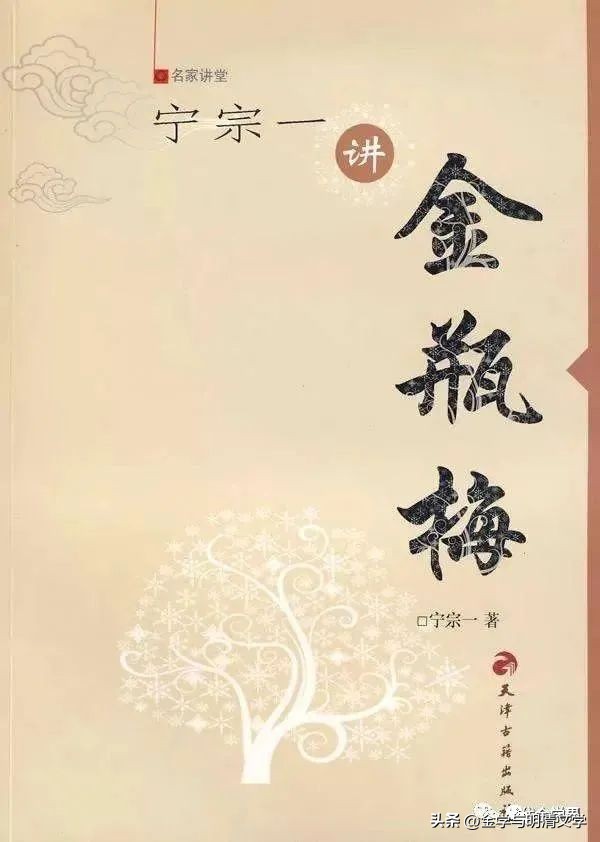 名家讲堂
宁宗一
讲
金瓶梅
□宁宗一 著
天津古籍出版
头条 @金学与明清文学